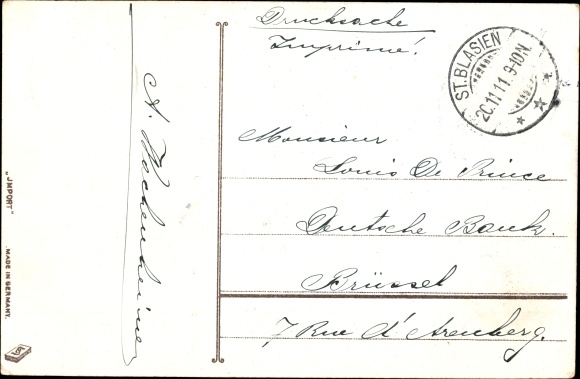 Drucksache
Imprimé!
ST. BLASIEN
20.11.11. 9-10N.
Monsieur
Louis De Prince
Deutsche Bank.
Brüssel
7 Rue d'Arenberg.
A. Wachenheimer
„IMPORT"
MADE IN GERMANY.